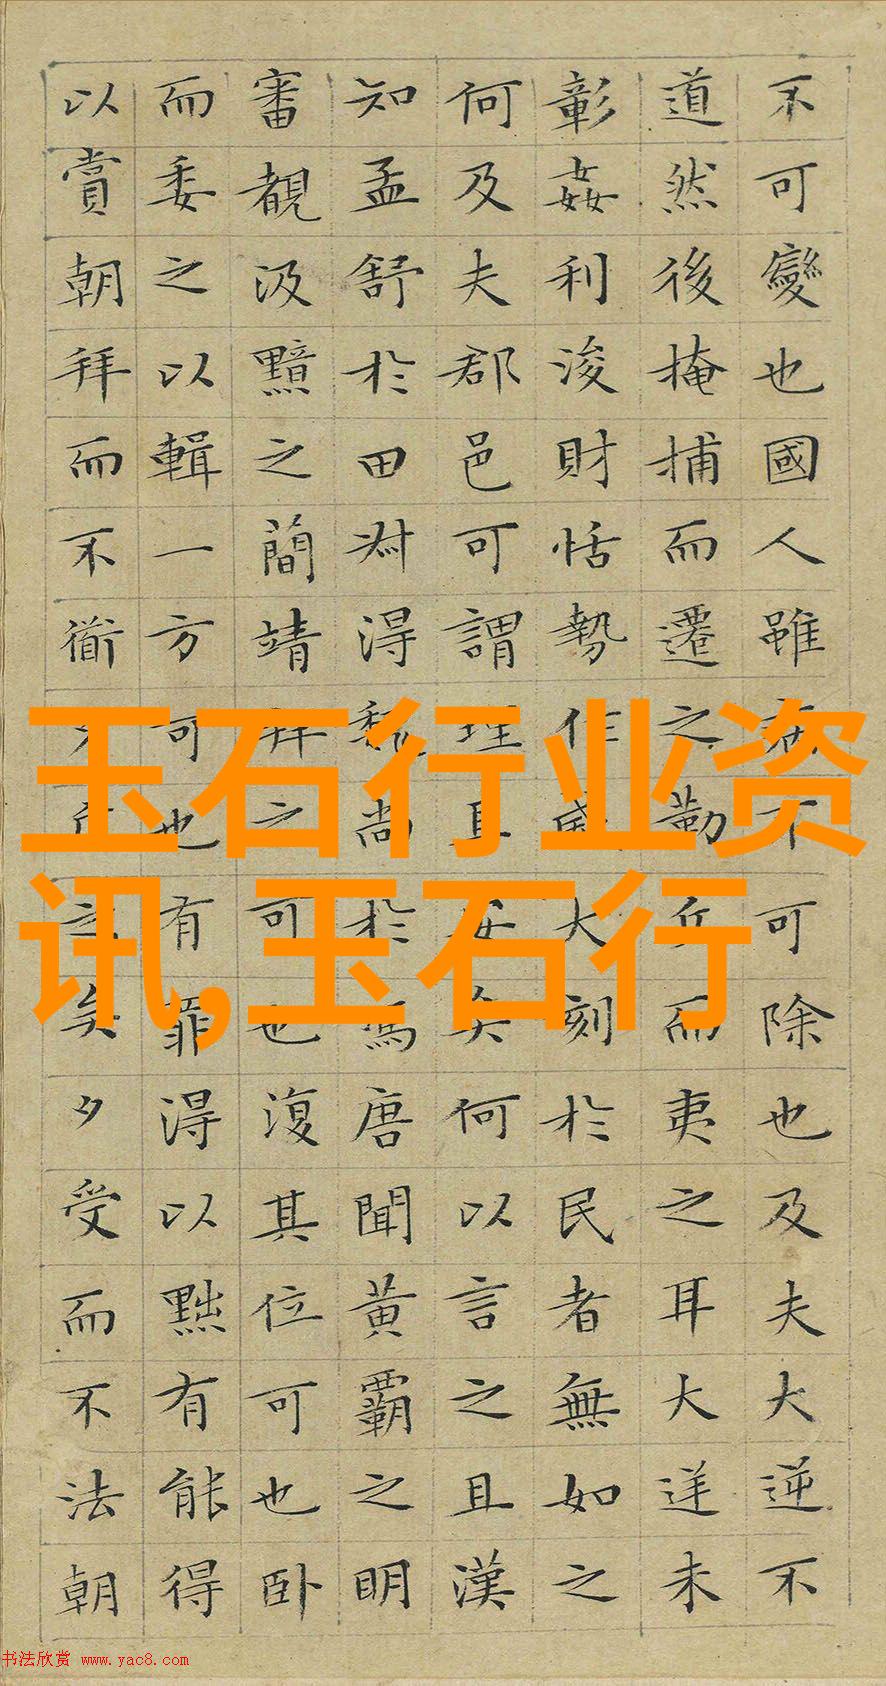 不可變也國人雖病不可除也及夫大逆不
道然後掩捕而遷之勒兵而夷之耳大逆未
彰姦利浚財怙勢作威大刻於民者無如之
何及夫郡邑可謂理且安矣何以言之且漢
知孟舒於田叔得魏尚於馮唐聞黄霸之明
審覩汲黯之簡靖拜之可也復其位可也卧
而委之以輯一方可也有罪得以黜有能得
以賞朝拜而不衜夕斥之矣夕受而不法朝
玉石行业资
讯,玉石行
书法欣赏 www.yac8.com